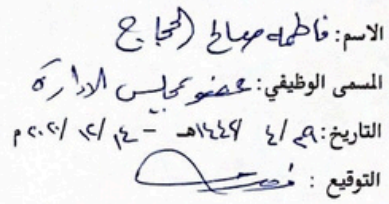 الاسم: فاطمه صالح الحجاج
المسمى الوظيفي: عضو مجلس الادارة
التاريخ: ٢٩/ ٤ /١٤٤٢هـ - ١٤/ ١٢/ ٢٠٢٠م
التوقيع :